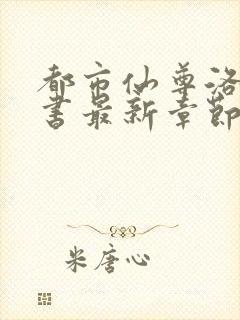 都市仙尊洛
书最新章節
米唐心